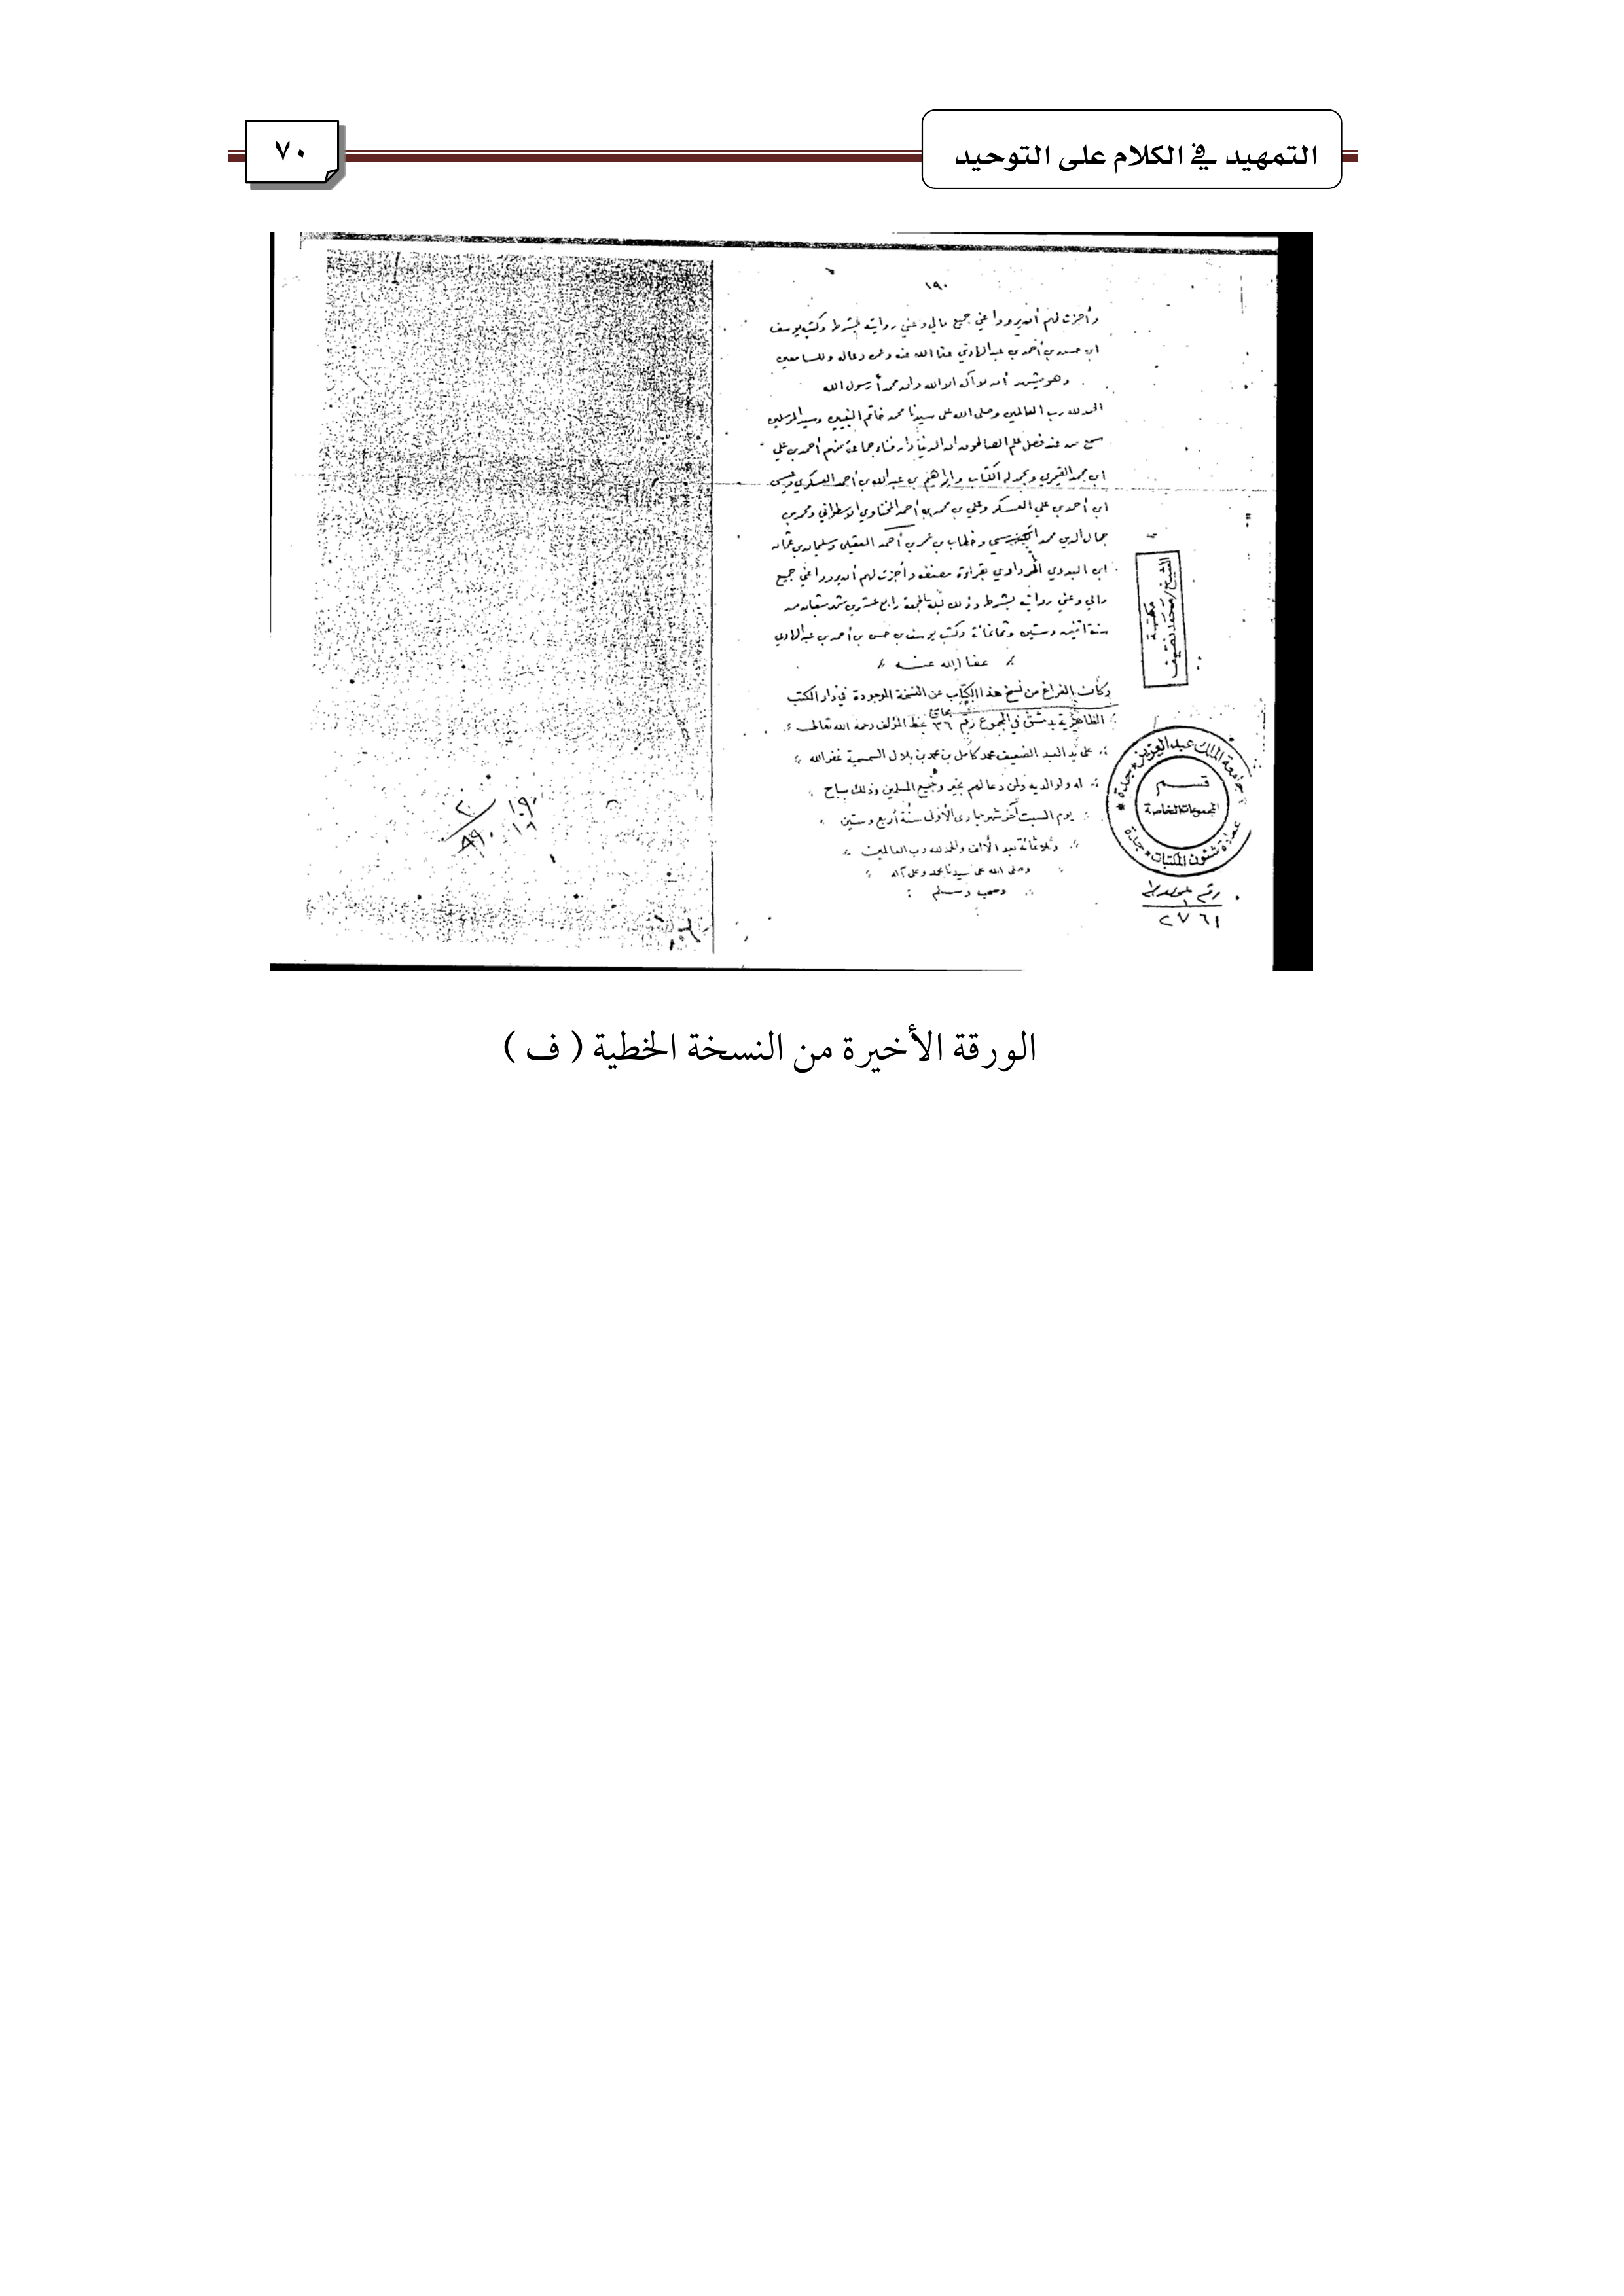 التمهيد في الكلام على التوحيد
٧٠
١٩٠
وأجزت لهم أن يرووا عني جميع مالي وعني روايته بشرطه وكتب يوسف
ابن حسن بن أحمد بن عبد الهادي عفا الله عنه وعمن دعا له وللسامعين
وهو يشهد أن لا آله الا الله وان محمداً رسول الله
الحمد لله رب العالمين وصلى الله على سيدنا محمد خاتم النبيين وسيد المرسلين
سمع من عند فصل علم الصالحون ان الدنيا دار فناء جماعة منهم أحمد بن علي
ابن محمد وابراهيم بن عبد الله بن أحمد العسكري وعيسى
ابن أحمد بن علي العسكر وعلي بن محمد بن أحمد ومحمد بن
جمال الدين محمد وخطاب بن عمر بن أحمد وسليمان بن عثمان
ابن المرداوي بقراءة مصنفه وأجزت لهم أن يرووا عني جميع
مالي وعني روايته بشرطه وذلك ليلة الجمعة رابع عشرين شهر شعبان من
سنة اثنين وستين وثمانمائة وكتب يوسف بن حسن بن أحمد بن عبد الهادي
عفا الله عنه
وكان الفراغ من نسخ هذا الكتاب عن النسخة الموجودة في دار الكتب
الظاهرية بدمشق في المجموع رقم ٣٦ بخط المؤلف رحمه الله تعالى
على يد العبد الضعيف محمد كامل بن محمد بن بلال السمسمية غفر الله
له ولوالديه ولمن دعا لهم بخير ولجميع المسلمين وذلك صباح
يوم السبت آخر شهر جمادى الأول سنة أربع وستين
وثلاثمائة بعد الألف والحمد لله رب العالمين
وصلى الله على سيدنا محمد وعلى آله
وصحبه وسلم
مكتبة
الشيخ/محمد نصيف
جامعة الملك عبد العزيز جدة
قسم
المجموعات الخاصة
عمادة شئون المكتبات جدة
رقم
٢٧٦١
الورقة الأخيرة من النسخة الخطية ( ف )